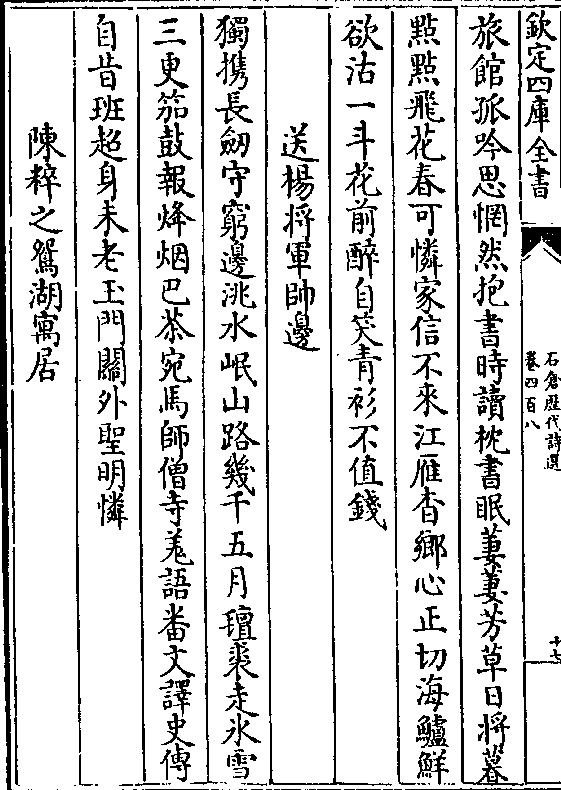 欽定四庫全書
石倉歷代詩選
卷四百八
十七
旅館孤吟思惘然抱書時讀枕書眠萋萋芳草日將暮
點點飛花春可憐家信不來江雁杳鄉心正切海鱸鮮
欲沽一斗花前醉自笑青衫不值錢
送楊將軍帥邊
獨携長劒守窮邊洮水岷山路幾千五月氊裘走氷雪
三更笳鼓報烽烟巴茶宛馬師僧寺羗語畨文譯史傳
自昔班超身未老玉門關外聖明憐
陳粹之鴛湖寓居